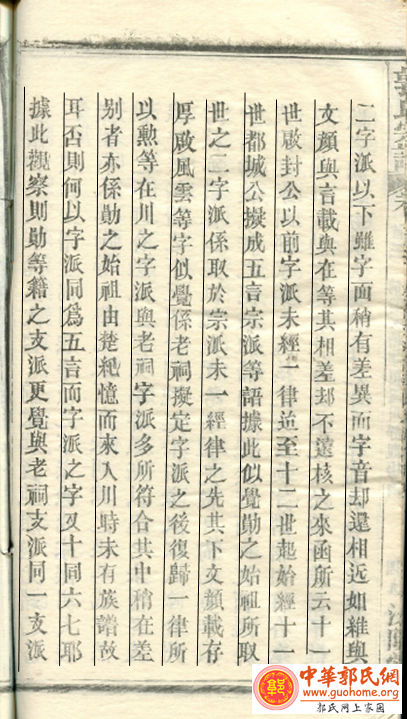 二字派以下雖字面稍有差異而字音却還相近如維與
文顏與言載與在等其相差却不遠核之來函所云十一
世啟封公以前字派未經一律迨至十二世起始經十一
世都城公擬成五言宗派等語據此似覺勛之始祖所取
世之二字派係取於宗派未一經律之先其下文顏載存
厚啟風雲等字似覺係老祠擬定字派之後復歸一律所
以勳等在川之字派與老祠字派多所符合其中稍在差
别者亦係勛之始祖由楚紀憶而來入川時未有族譜故
耳否則何以字派同爲五言而字派之字又十同六七耶
據此觀察則勛等籍之支派更覺與老祠支派同一支派
郭氏宗譜
中華郭氏網
www.guohome.org
郭氏网上家園